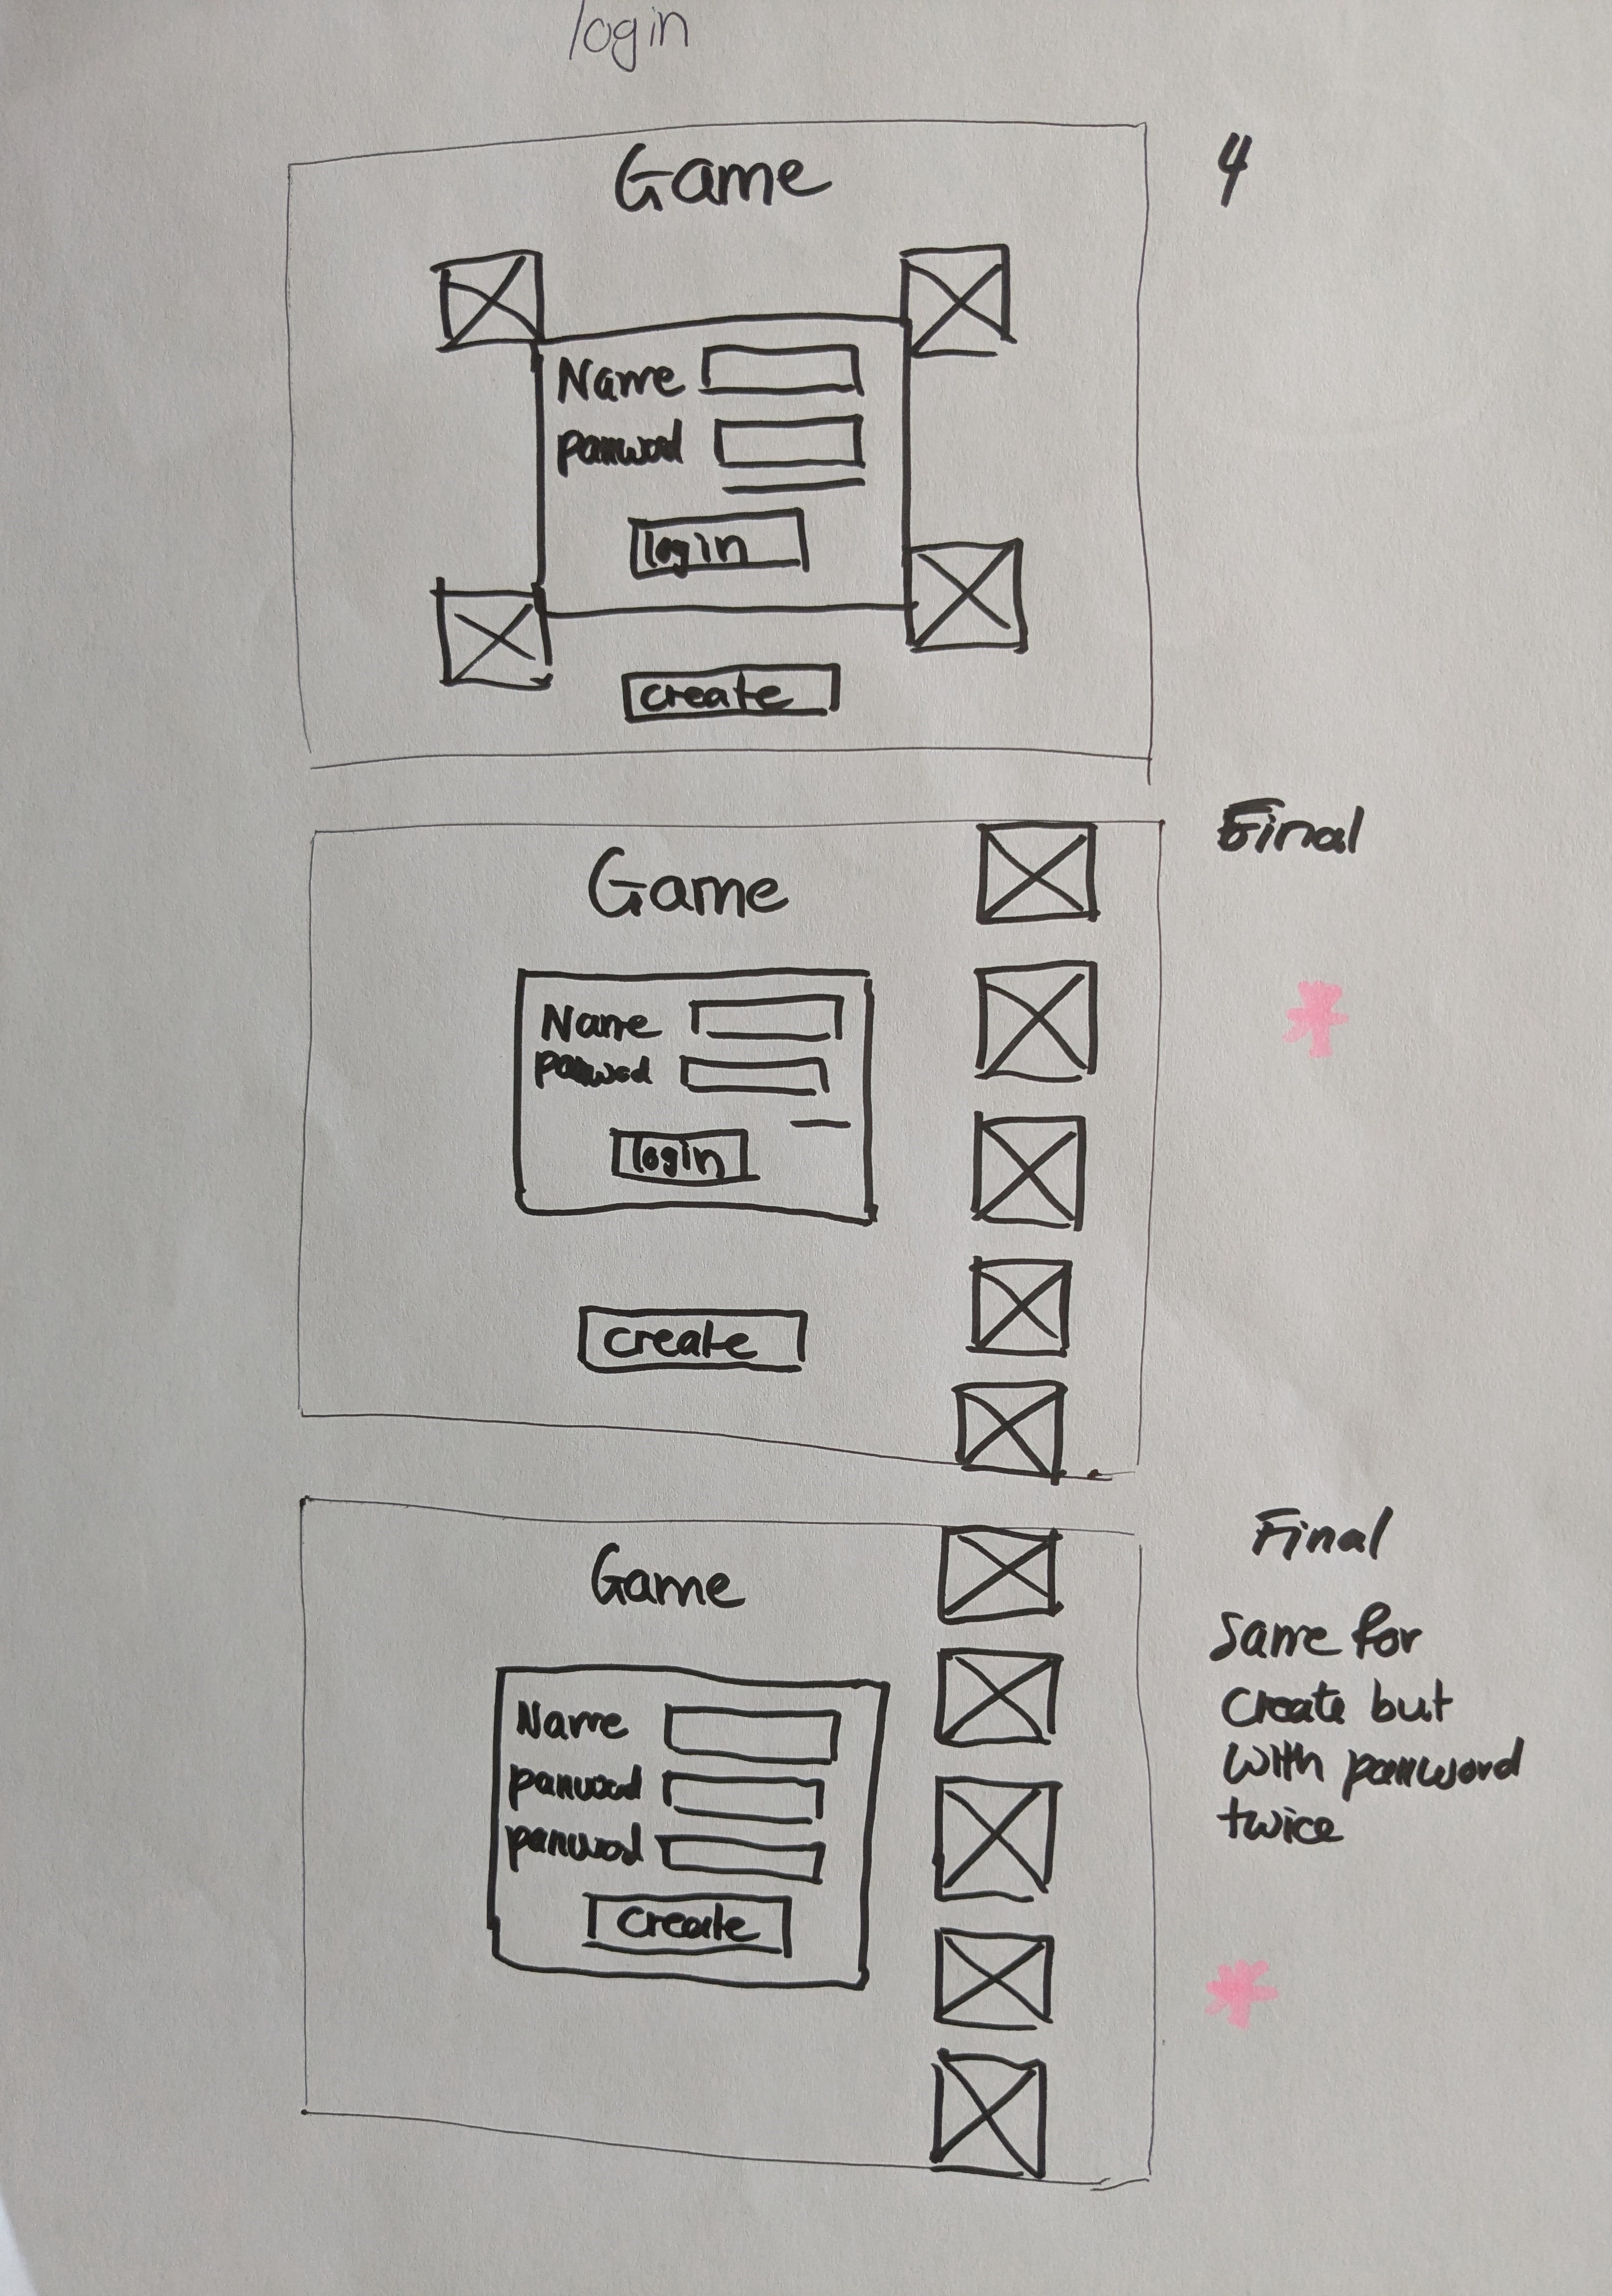 login
Game
4
Name
password
login
create
Final
Game
Name
password
login
create
Final
Game
Same for
Create but
with password
twice
Name
password
password
Create